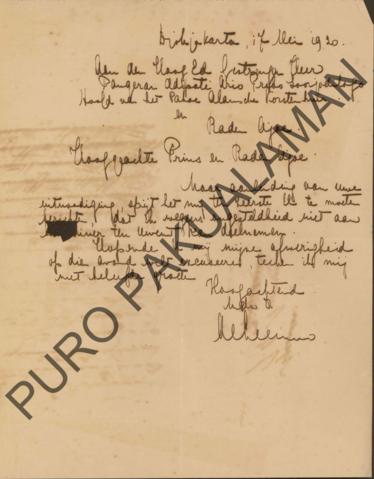 Djokjakarta, 17 Mei 1930.
Aan den Hoog Ed Gestrenge Heer
Pangeran Adipati Ario
Hoofd van het Pakoe Alamsche Vorstenhuis
en
Raden Ajoe
Hooggeachte Prins en Raden Ajoe.
Naar aanleiding van uwe
uitnoodiging, spijt het mij ten zeerste U te moeten
dat ik wegens ongesteldheid niet aan
diner ten Uwent kan deelnemen.
Hopende mij mijne afwezigheid
op die avond wilt excuseeren, teeken ik mij
met beleefde groeten
Hoogachtend
PURO PAKUALAMAN